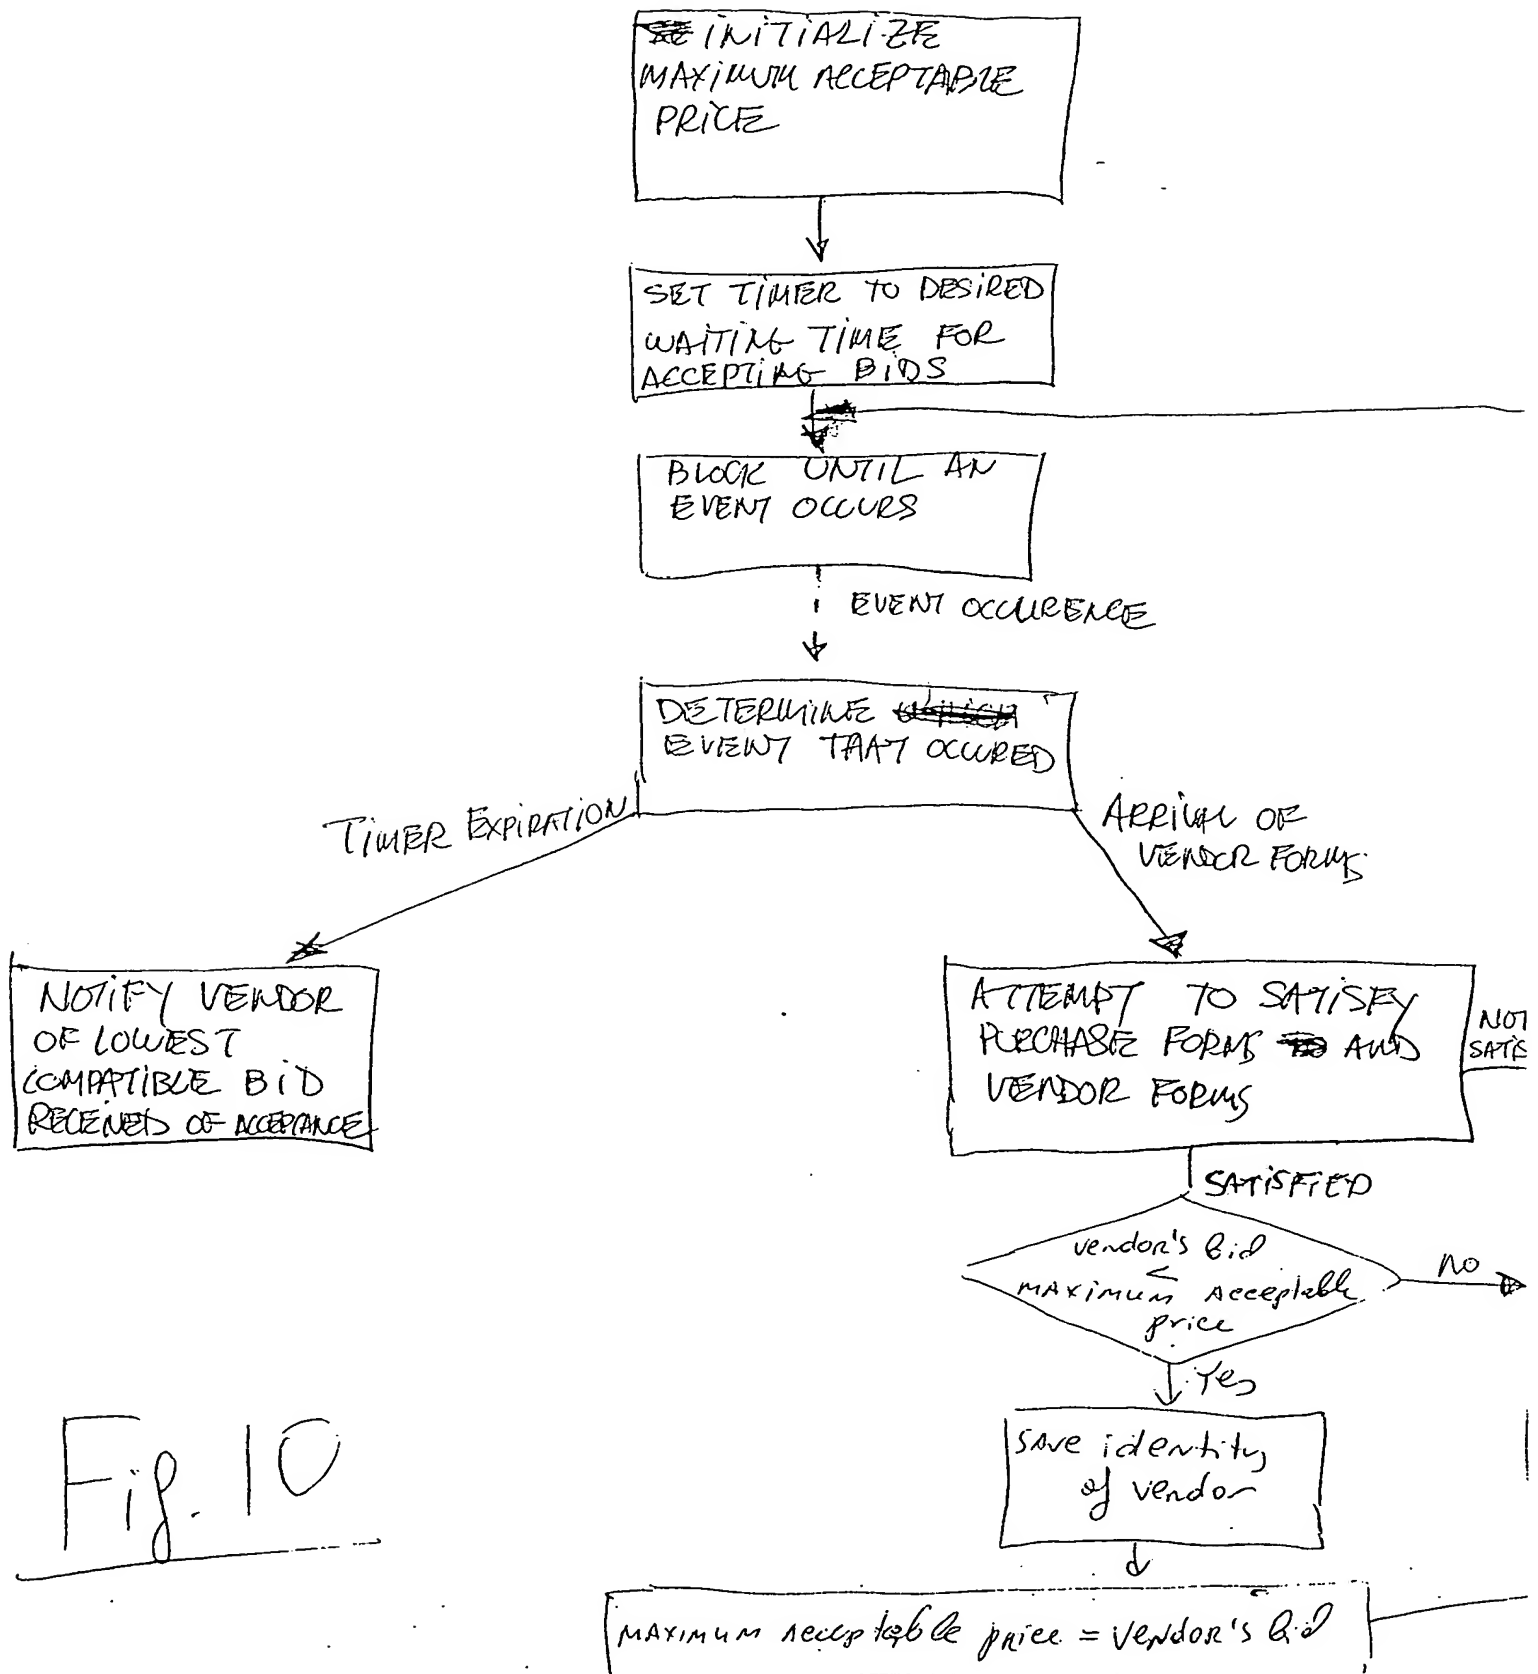 INITIALIZE
MAXIMUM ACCEPTABLE
PRICE
SET TIMER TO DESIRED
WAITING TIME FOR
ACCEPTING BIDS
BLOCK UNTIL AN
EVENT OCCURS
EVENT OCCURENCE
DETERMINE
EVENT THAT OCCURED
TIMER EXPIRATION
ARRIVAL OF
VENDOR FORMS
NOTIFY VENDOR
OF LOWEST
COMPATIBLE BID
RECEIVED OF ACCEPTANCE
ATTEMPT TO SATISFY
PURCHASE FORMS AND
VENDOR FORMS
NOT
SATIS
SATISFIED
vendor's bid
<
MAXIMUM Acceptable
price
NO
Yes
SAve identity
of vendor
MAXIMUM Acceptable price = vendor's bid
Fig. 10